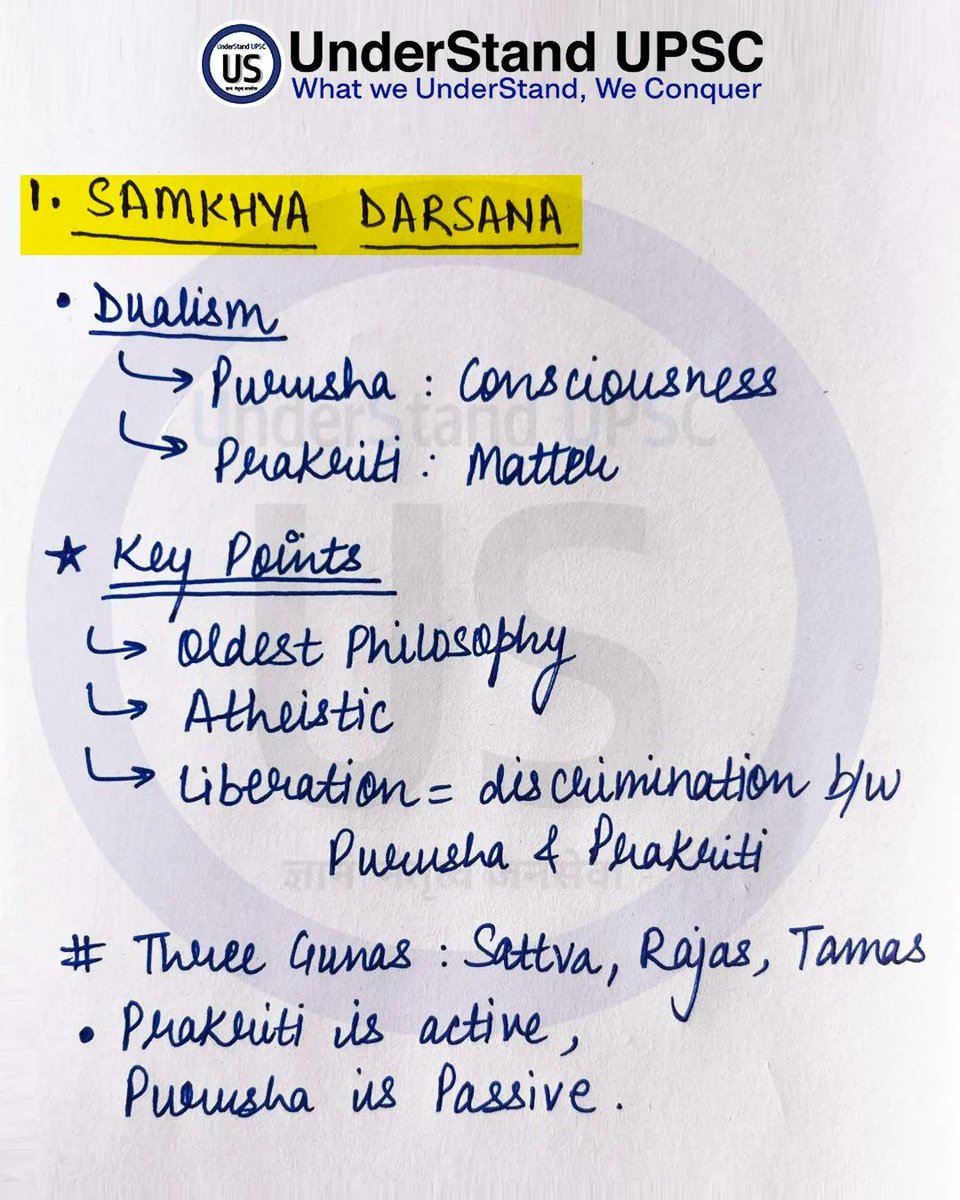 UnderStand UPSC
US
ज्ञान नेतृत्व जनसेवा
UnderStand UPSC
What we UnderStand, We Conquer
1. SAMKHYA DARSANA
• Dualism
↳ Purusha : Consciousness
↳ Prakriti : Matter
UnderStand UPSC
★ Key Points
↳ Oldest Philosophy
US
↳ Atheistic
↳ Liberation = discrimination b/w
Purusha & Prakriti
ज्ञान नेतृत्व जनसेवा
# Three Gunas : Sattva, Rajas, Tamas
• Prakriti is active,
Purusha is Passive.